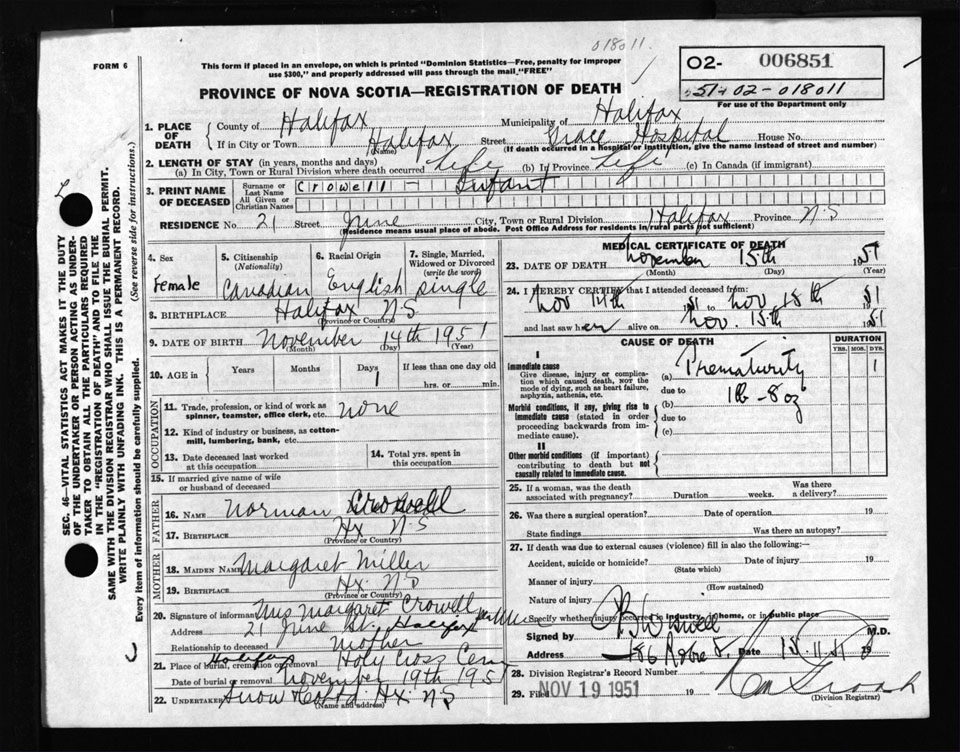 018011.
FORM 6
This form if placed in an envelope, on which is printed "Dominion Statistics—Free, penalty for improper
use $300," and properly addressed will pass through the mail "FREE"
PROVINCE OF NOVA SCOTIA—REGISTRATION OF DEATH
02- 006851
51-02-018011
For use of the Department only
1. PLACE OF DEATH
County of Halifax Municipality of Halifax
If in City or Town Halifax Street Grace Hospital House No.
(Name) (If death occurred in a hospital or institution, give the name instead of street and number)
2. LENGTH OF STAY (in years, months and days)
(a) In City, Town or Rural Division where death occurred Life (b) In Province Life (c) In Canada (if immigrant)
3. PRINT NAME OF DECEASED
Surname or Last Name Crowell — Infant
All Given or Christian Names
RESIDENCE No. 21 Street June City, Town or Rural Division Halifax Province N.S
(Residence means usual place of abode. Post Office Address for residents in rural parts not sufficient)
4. Sex Female
5. Citizenship (Nationality) Canadian
6. Racial Origin English
7. Single, Married, Widowed or Divorced (write the word) Single
8. BIRTHPLACE Halifax N.S
(Province or Country)
9. DATE OF BIRTH November 14th 1951
(Month) (Day) (Year)
10. AGE in Years Months Days 1 If less than one day old
hrs. or min.
OCCUPATION
11. Trade, profession, or kind of work as
spinner, teamster, office clerk, etc. none
12. Kind of industry or business, as cotton-
mill, lumbering, bank, etc.
13. Date deceased last worked
at this occupation
14. Total yrs. spent in
this occupation
15. If married give name of wife
or husband of deceased
FATHER
16. NAME Norman Crowell
17. BIRTHPLACE Hx N.S
(Province or Country)
MOTHER
18. MAIDEN NAME Margaret Miller
19. BIRTHPLACE Hx. N.S
(Province or Country)
20. Signature of informant Mrs Margaret Crowell
Address 21 June St. Halifax
Relationship to deceased Mother
21. Place of burial, cremation or removal Halifax Holy Cross Cem
Date of burial or removal November 19th 1951
22. UNDERTAKER Snow Hx. N.S
(Name and address)
MEDICAL CERTIFICATE OF DEATH
23. DATE OF DEATH November 15th 1951
(Month) (Day) (Year)
24. I HEREBY CERTIFY that I attended deceased from:
Nov 14th 1951 to Nov 15th 1951
and last saw her alive on Nov. 15th 1951
CAUSE OF DEATH
DURATION
YRS. MOS. DYS.
I
Immediate cause
Give disease, injury or complica-
tion which caused death, not the
mode of dying, such as heart failure,
asphyxia, asthenia, etc.
(a) Prematurity 1
due to
Morbid conditions, if any, giving rise to
immediate cause (stated in order
proceeding backwards from im-
mediate cause).
(b) 1lb - 8oz
due to
(c)
II
Other morbid conditions (if important)
contributing to death but not
causally related to immediate cause.
25. If a woman, was the death
associated with pregnancy? Duration weeks. Was there
a delivery?
26. Was there a surgical operation? Date of operation 19
State findings Was there an autopsy?
27. If death was due to external causes (violence) fill in also the following:—
Accident, suicide or homicide? Date of injury 19
(State which)
Manner of injury
(How sustained)
Nature of injury
Specify whether injury occurred in industry, in home, or in public place
Signed by M.D.
Address 186 Date 15.11.51
28. Division Registrar's Record Number
29. Filed NOV 19 1951 19
(Division Registrar)
SEC. 46—VITAL STATISTICS ACT MAKES IT THE DUTY
OF THE UNDERTAKER OR PERSON ACTING AS UNDER-
TAKER TO OBTAIN ALL THE PARTICULARS REQUIRED
IN THE "REGISTRATION OF DEATH" AND TO FILE THE
SAME WITH THE DIVISION REGISTRAR WHO SHALL ISSUE THE BURIAL PERMIT.
WRITE PLAINLY WITH UNFADING INK. THIS IS A PERMANENT RECORD.
Every item of information should be carefully supplied. (See reverse side for instructions.)